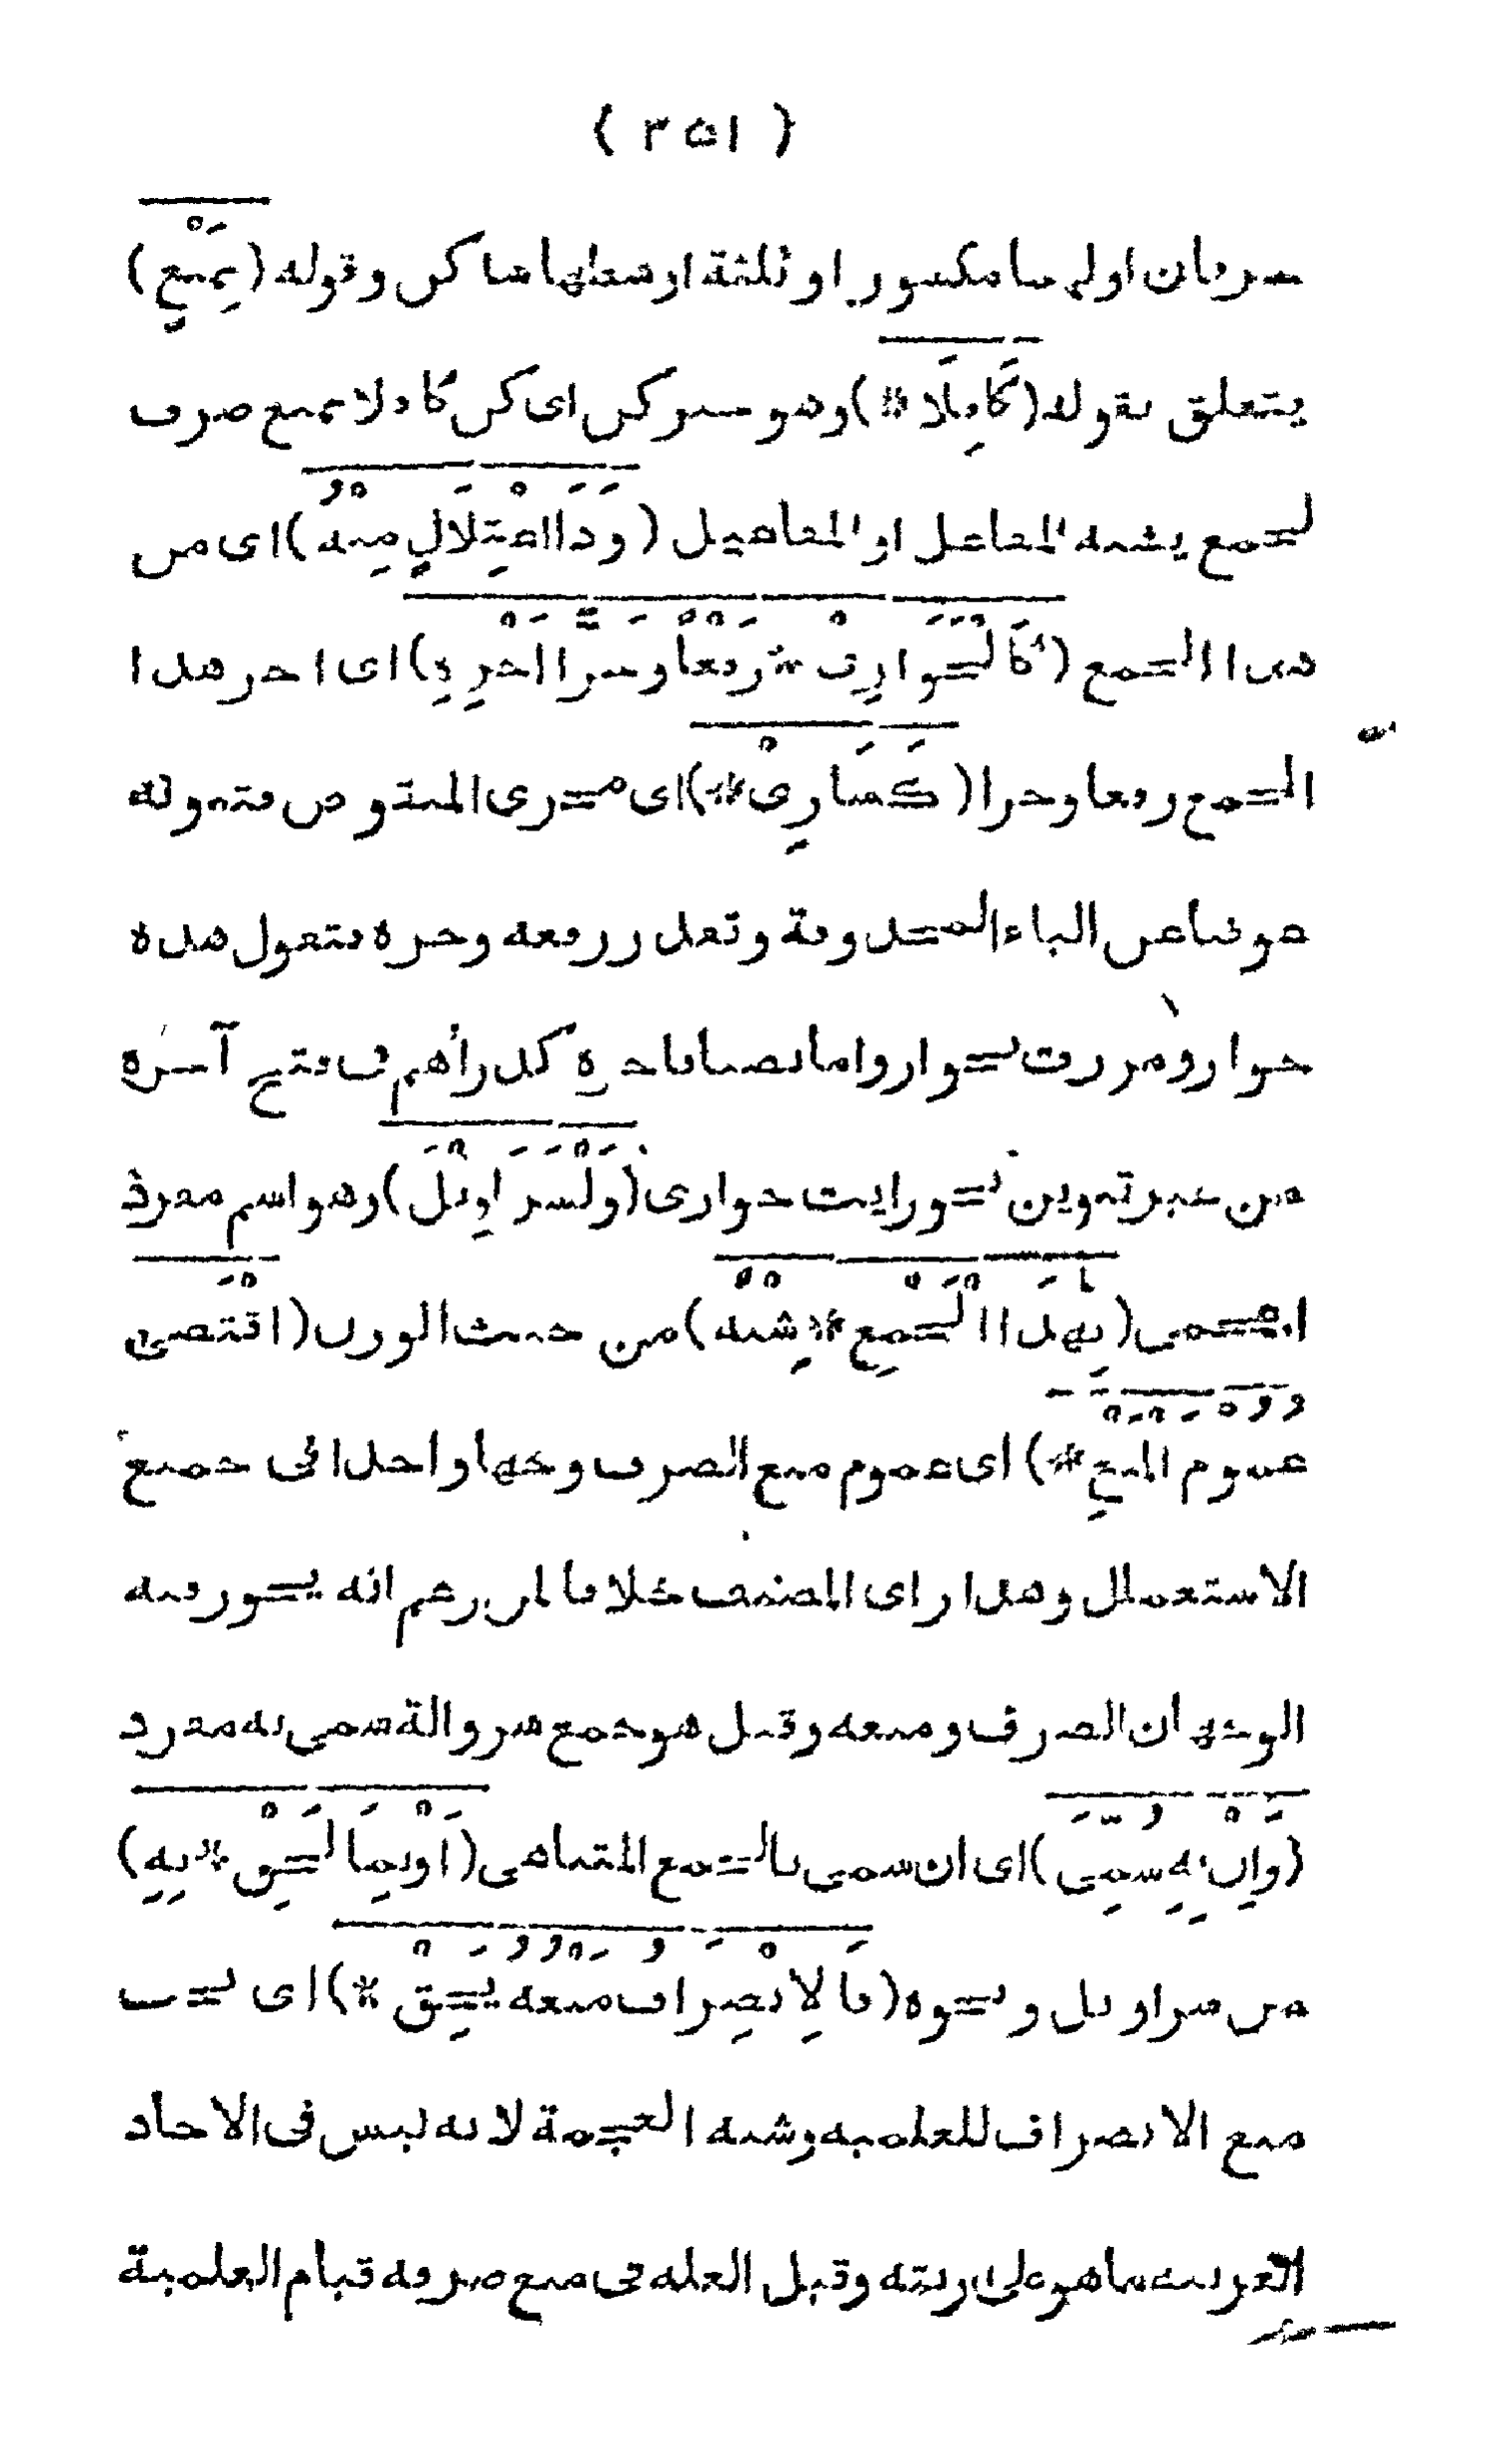 ( ٣٥١ )
حرفان اولهما مكسور او ثلثة اوسطها ساكن وقوله (بِمَنْعٍ)
يتعلق بقوله (كَافِلَا *) وهو خبر كن اى كن كافلا بمنع صرف
لجمع يشبه المفاعل او المفاعيل (وَذَا اعْتِلَالٍ مِنْهُ) اى من
هذا الجمع (كَالْجَوَارِى * رَفْعًا وَجَرًّا اَجْرِهِ) اى اجر هذا
الجمع رفعا وجرا (كَسَارِىْ *) اى مجرى المنقوص فتنونه
عوضا عن الياء المحذوفة وتقدر رفعه وجره فتقول هذه
جوار ومررت بجوار واما نصبا فاجره كدراهم فى فتح آخره
من غير تنوين نحو رايت جوارى (وَلْسَرَاوِيلَ) وهو اسم مفرد
اعجمى (بِهٰذَا الْجَمْعِ * شِبْهٌ) من حيث الوزن (اقْتَضَىٰ
عُمُومَ الْمَنْعِ *) اى عموم منع الصرف وجها واحدا فى جميع
الاستعمال وهذا راى المصنف خلافا لمن زعم انه يجوز فيه
الوجهان الصرف ومنعه وقيل هو جمع سروالة سمى به مفرد
(وَاِنْ بِهِ سُمِّىَ) اى ان سمى بالجمع المتناهى (اَوْ بِمَا لَحِقْ * بِهِ)
من سراويل ونحوه (فَالْاِنْصِرَافُ مَنْعُهُ يَحِقْ *) اى يجب
منع الانصراف للعلميه وشبه العجمة لانه ليس فى الاحاد
العربيه ما هو على زنته وقيل العله فى منع صرفه قيام العلمية